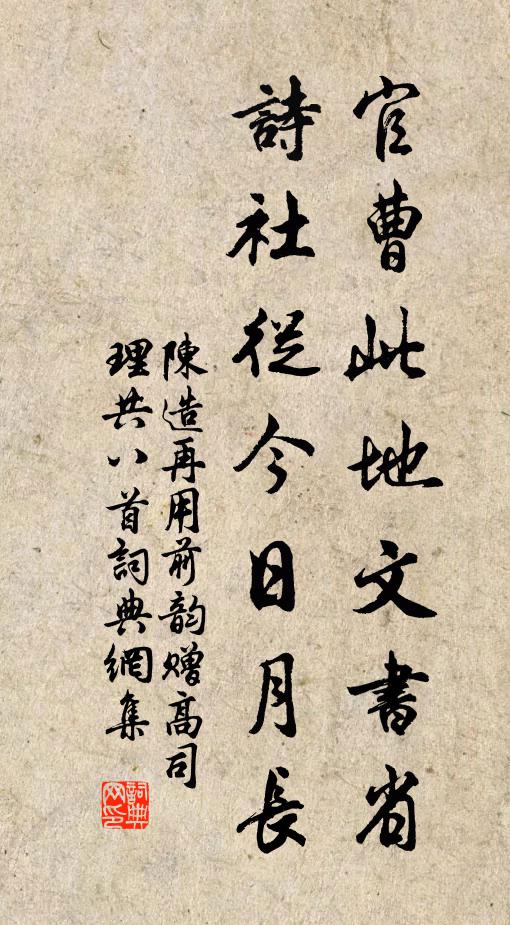 官曹此地文書省
詩社從今日月長
陳造再用前韵赠高司
理共八首詞典網集
詞典网印